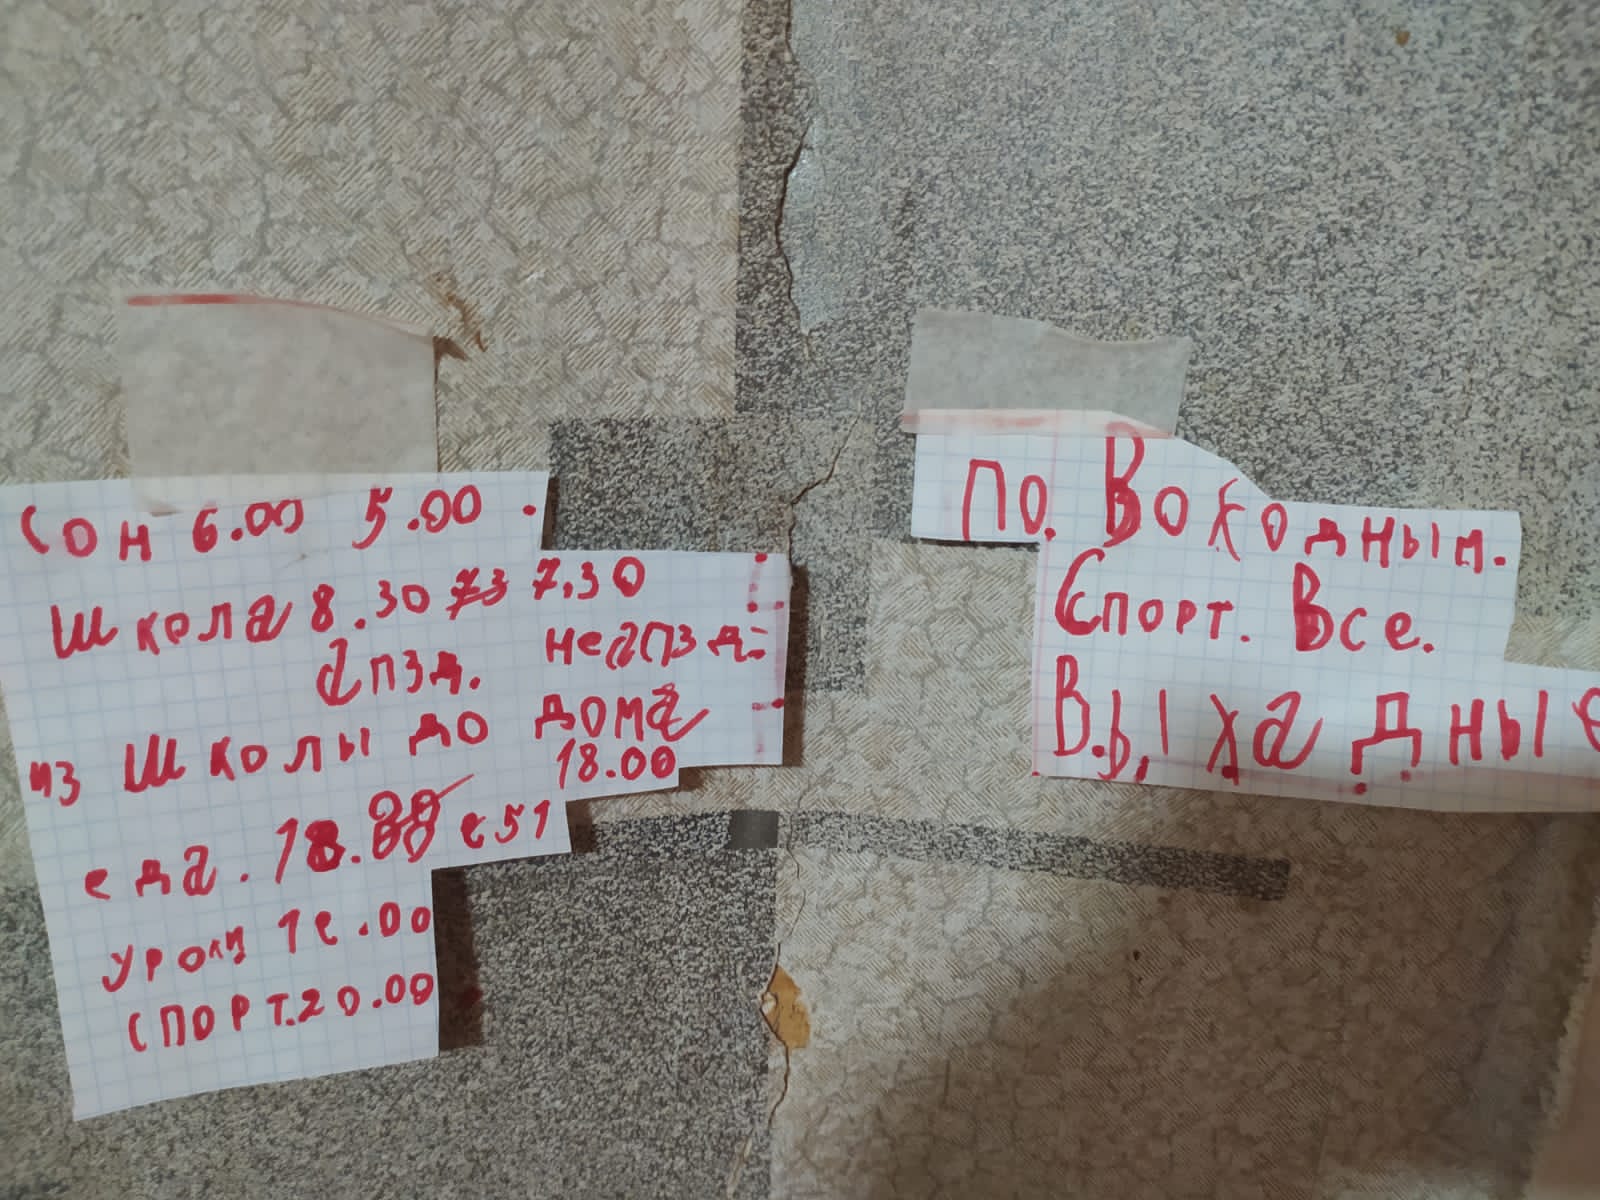 Сон 6.00 5.00.
Школа 8.30 7.30
апзд. неапзд.
из Школы до дома
18.00
еда. 18.
уроки 1е.00
Спорт.20.00
По. Воходным.
Спорт. Все.
В.ыхадные